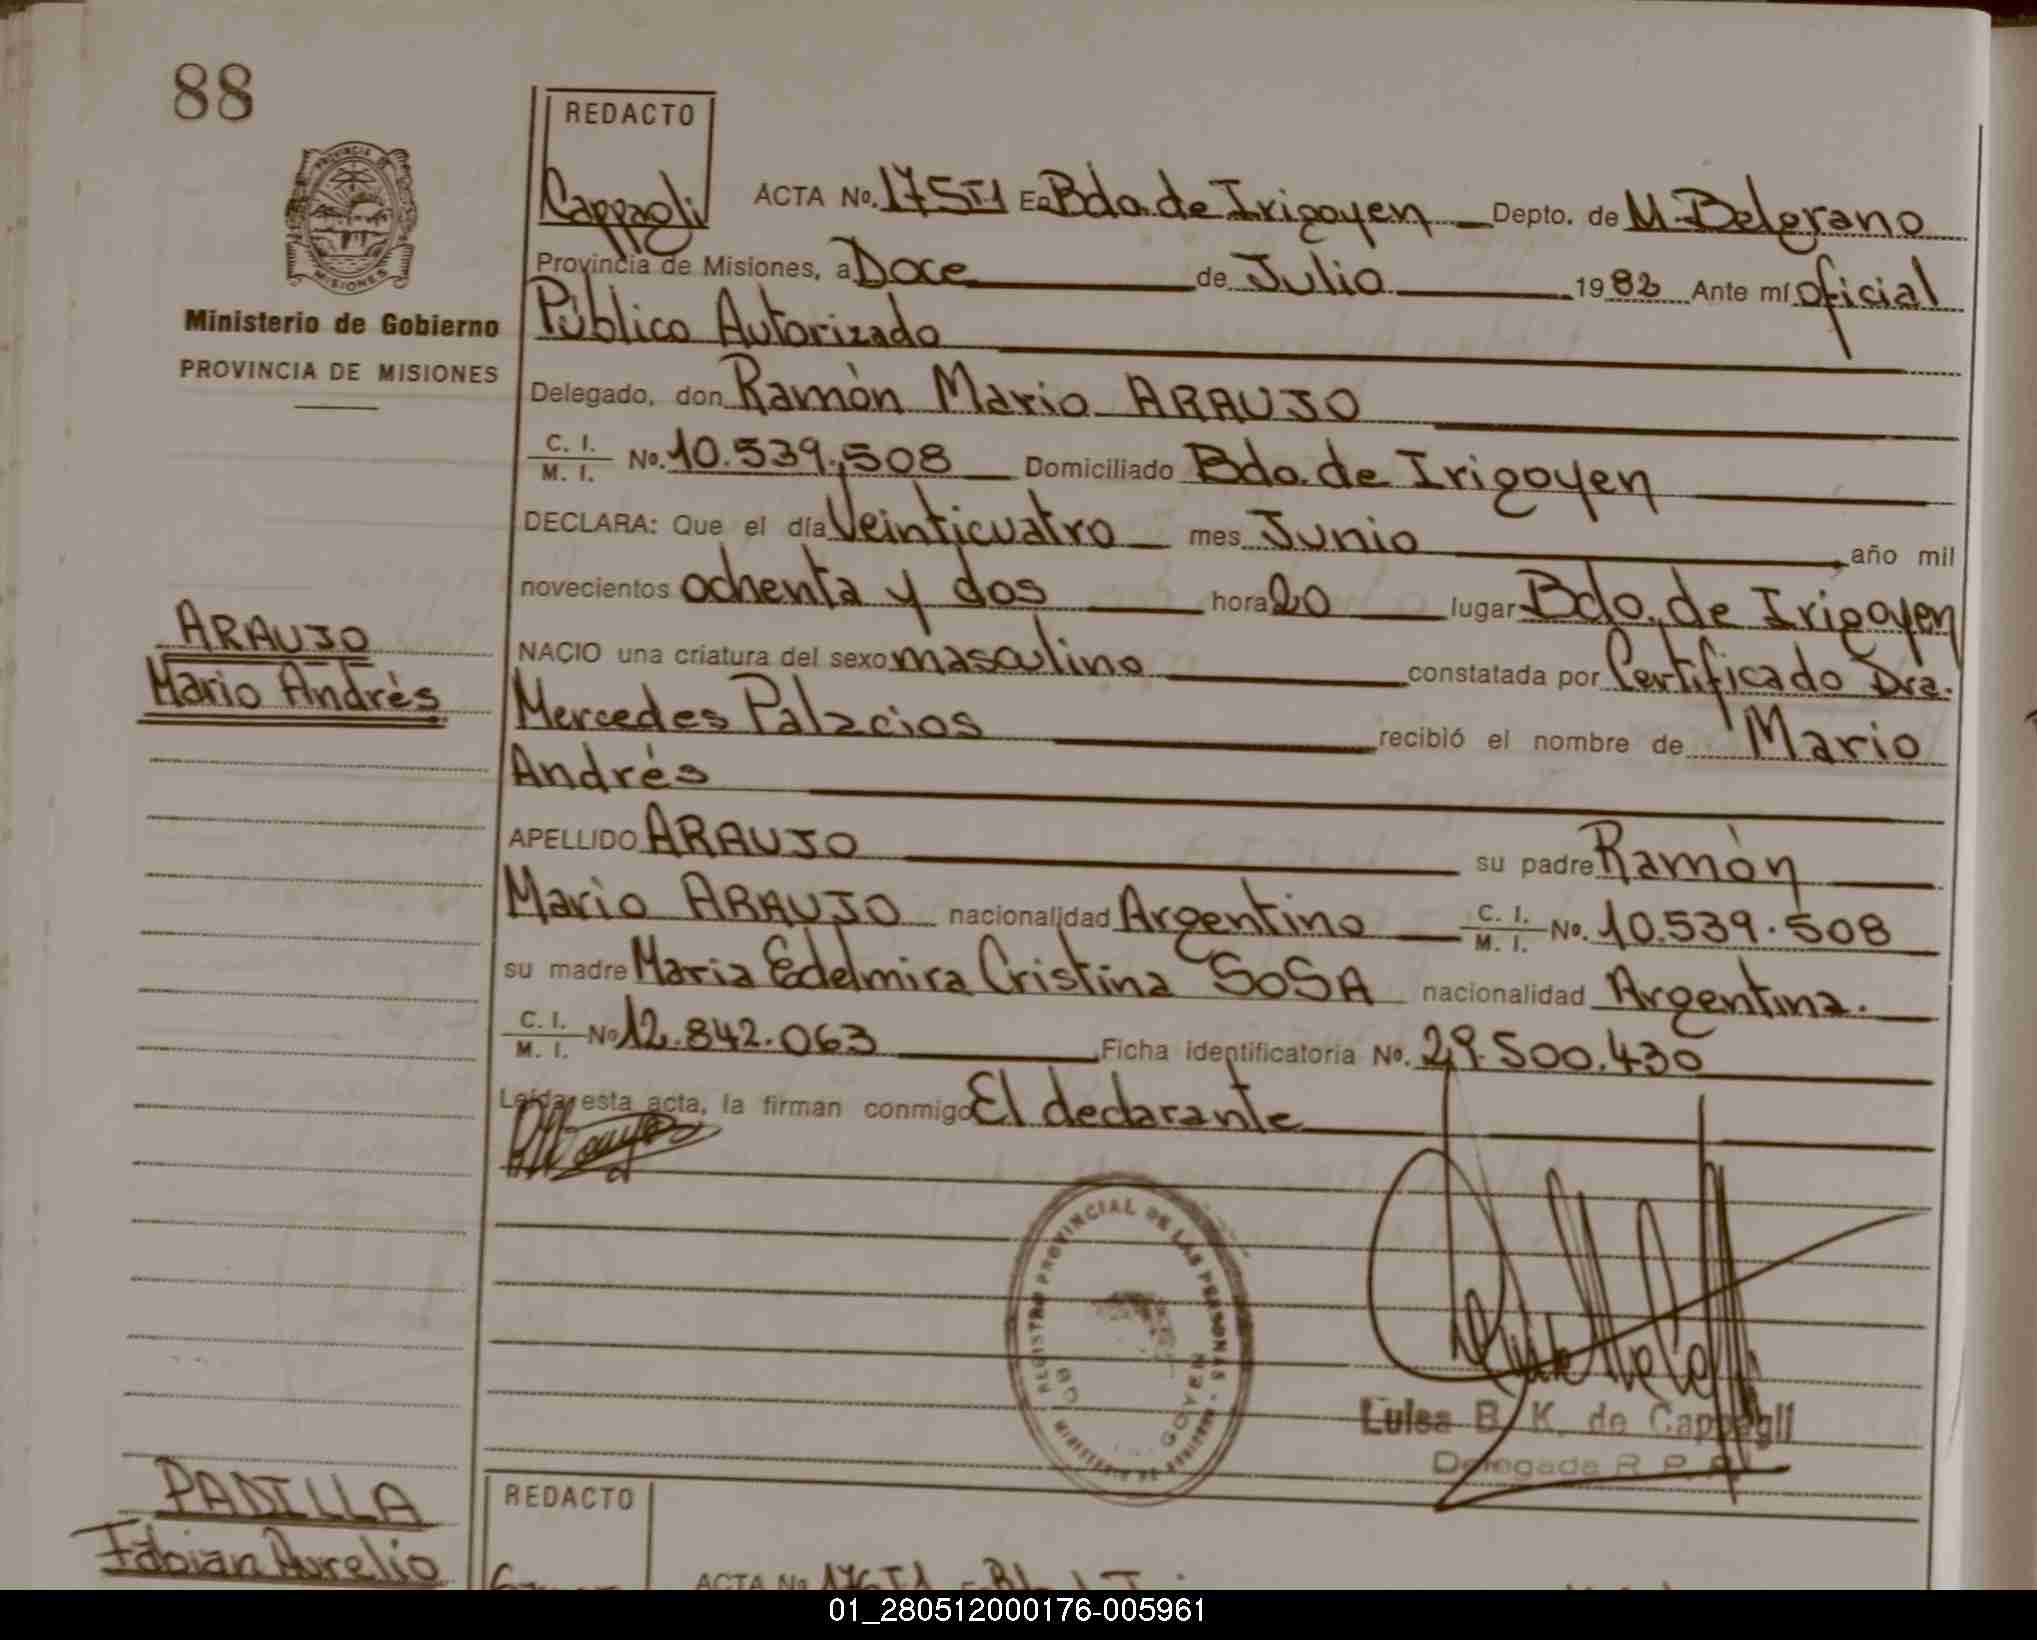 88
PROVINCIA DE
MISIONES
Ministerio de Gobierno
PROVINCIA DE MISIONES
ARAUJO
Mario Andrès
REDACTO
Cappagli
ACTA No. 175T1 En Bdo. de Irigoyen Depto. de M. Belgrano
Provincia de Misiones, a Doce de Julio 1982 Ante mí oficial
Público Autorizado
Delegado, don Ramòn Mario ARAUJO
C. I.
M. I. No. 10.539.508 Domiciliado Bdo. de Irigoyen
DECLARA: Que el día Veinticuatro mes Junio año mil
novecientos ochenta y dos hora 20 lugar Bdo. de Irigoyen
NACIO una criatura del sexo masculino constatada por Certificado Dra.
Mercedes Palacios recibió el nombre de Mario
Andrés
APELLIDO ARAUJO su padre Ramòn
Mario ARAUJO nacionalidad Argentino C. I.
M. I. No. 10.539.508
su madre Maria Edelmira Cristina SOSA nacionalidad Argentina.
C. I.
M. I. No 12.842.063 Ficha identificatoria No. 29.500.430
Leída esta acta, la firman conmigo El declarante
REGISTRO PROVINCIAL DE LAS PERSONAS
Luisa B. K. de Cappagli
Delegada R. P. P.
PADILLA
Fabian Aurelio
REDACTO
ACTA No 176T1
01_280512000176-005961